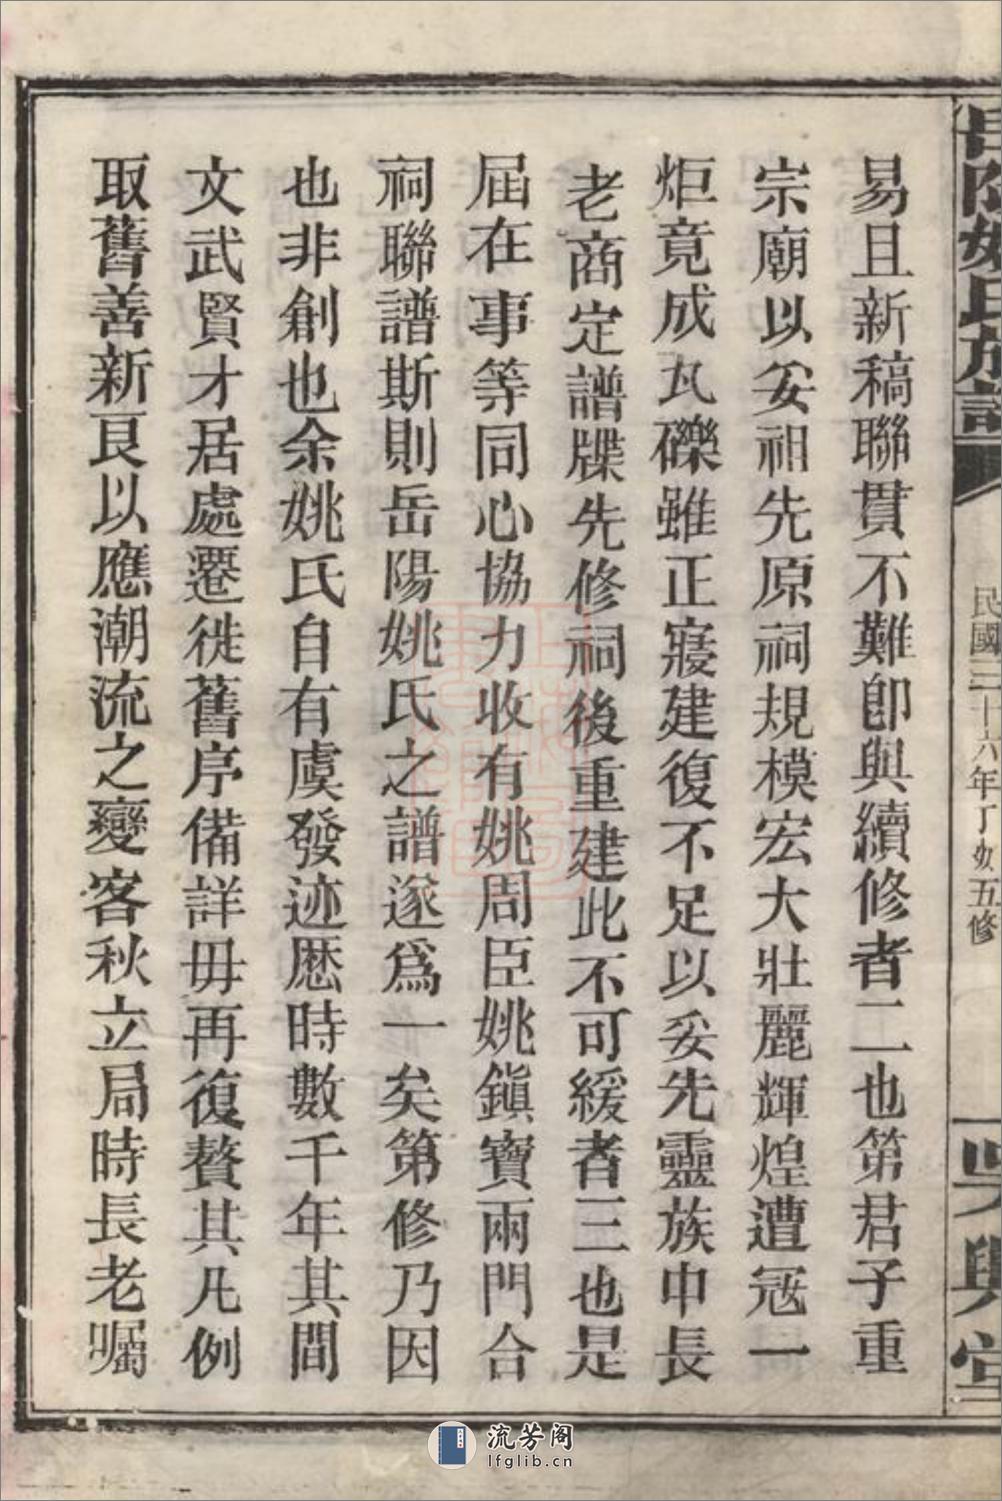 易且新稿聯貫不難卽與續修者二也第君子重
宗廟以妥祖先原祠規模宏大壯麗輝煌遭寇一
炬竟成瓦礫雖正寢建復不足以妥先靈族中長
老商定譜牒先修祠後重建此不可緩者三也是
屆在事等同心協力收有姚周臣姚鎭寶兩門合
祠聯譜斯則岳陽姚氏之譜遂爲一矣第修乃因
也非創也余姚氏自有虞發迹厯時數千年其間
文武賢才居處遷徙舊序備詳毋再復贅其凡例
取舊善新艮以應潮流之變客秋立局時長老囑
岳陽姚氏族譜
民國三十六年丁亥五修
吳興堂
流芳阁
lfglib.cn